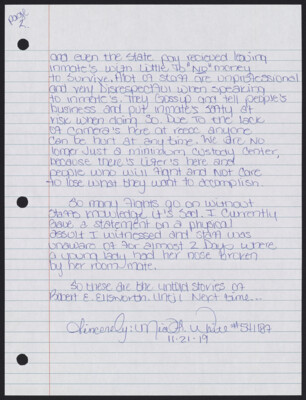 page
2
and even the state pay recieved leaving
inmate's with Little to "No" money
to survive. Alot of staff are unprofessional
and very disrespectful when speaking
to inmate's. They Gossip and tell people's
business and put inmate's safty at
rise when doing so. Due to the lack
of Camera's here at reece anyone
can be hurt at any time. We are No
longer Just a minimum custody Center,
because there's Lifer's here and
people who will Fight and Not Care
to lose what they want to accomplish.
So many Fights go on without
staffs knowledge it's sad. I currently
gave a statement on a physical
assult I witnessed and staff was
unaware of for almost 2 Days where
a young lady had her nose broken
by her room mate.
So these are the untold stories of
Robert E. Ellsworth. Until Next time...
Sincerely: White #541187
11-21-19